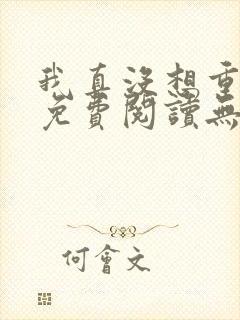 我真沒想重
免費閱讀無
何會文